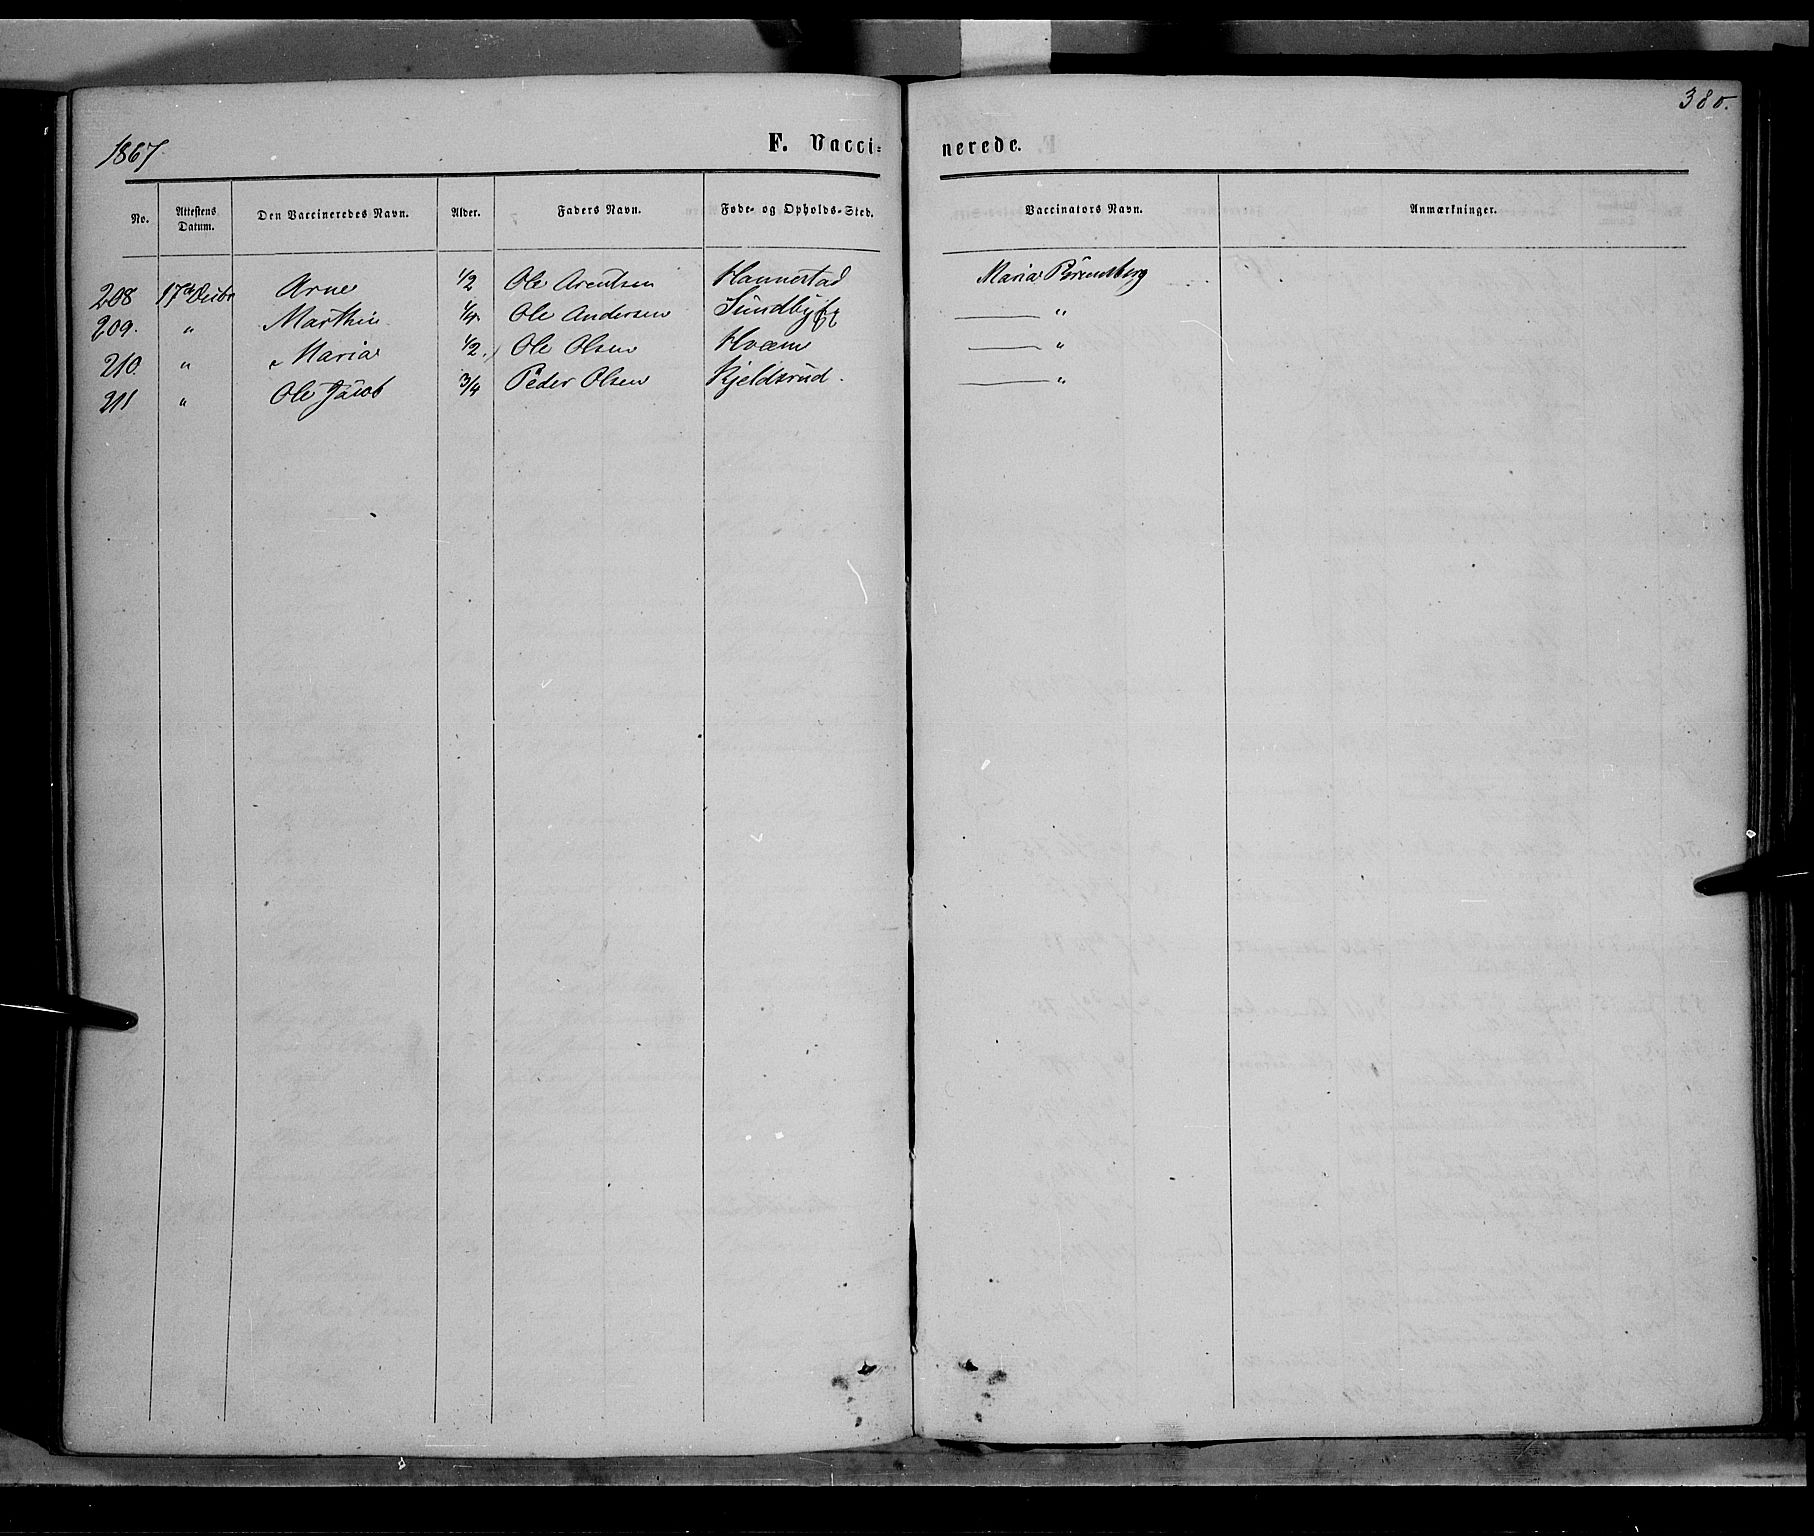 380.
1867.
F. Vaccinerede.
No. Attestens Datum. Den Vaccineredes Navn. Alder. Faders Navn. Føde- og Opholds-Sted. Vaccinators Navn. Anmærkninger.
208 17de Arne 1/2 Ole Arentsen Hannestad Maria
209. " Marthin 1/4 Ole Andersen ——— "
210. " Maria 1/2 Ole Olsen Hvæm ——— "
211 " Ole Jacob 3/4 Peder Olsen Kjeldsrud. ——— "